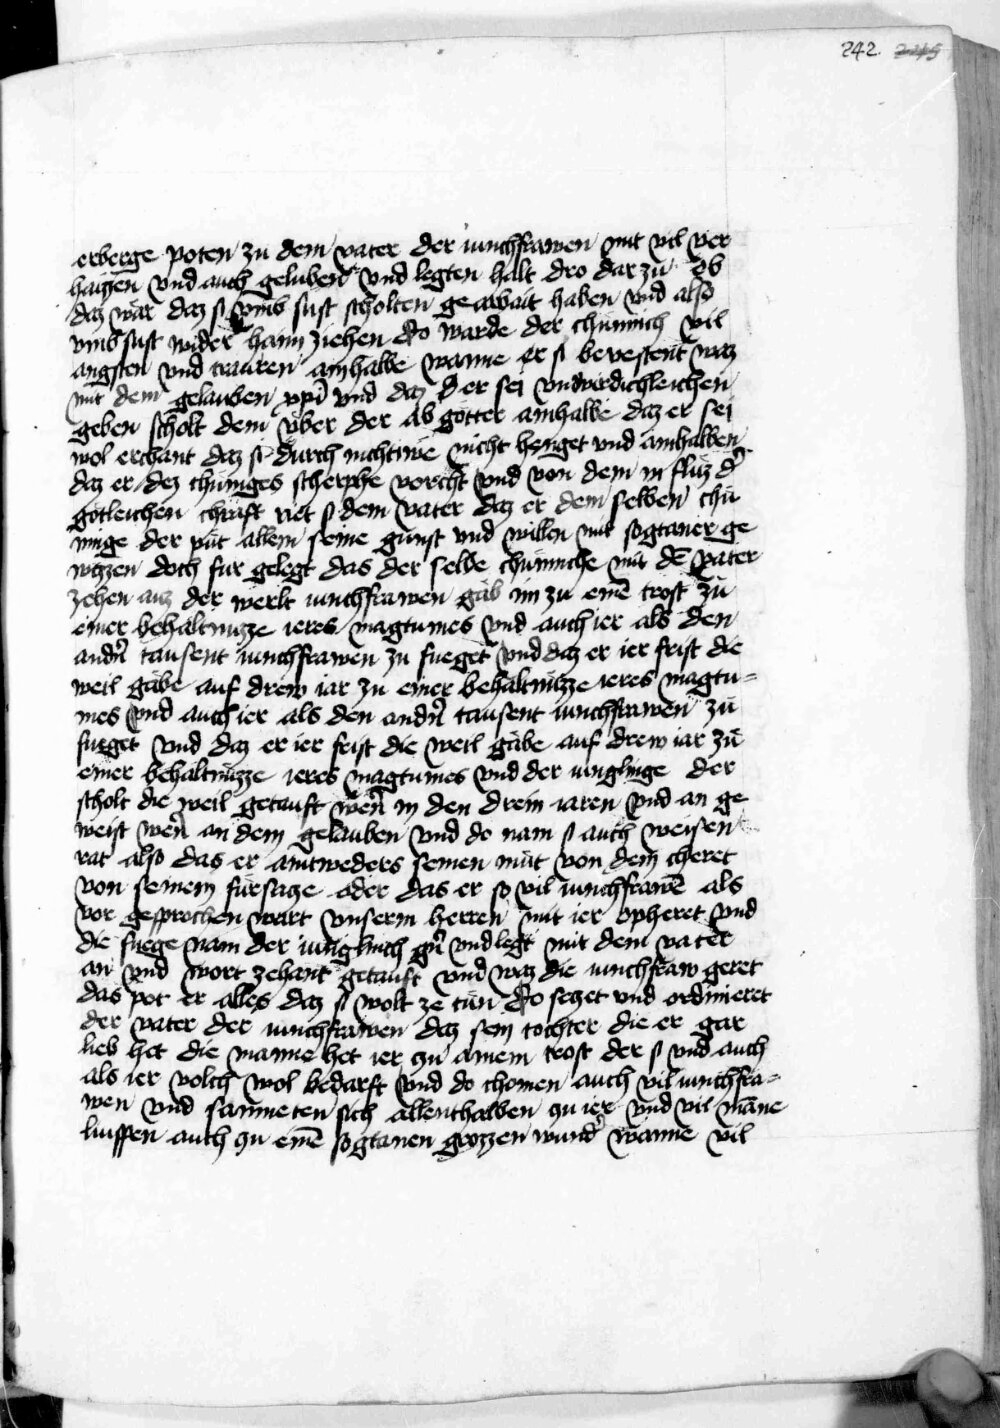 242. 245
erberge poten zu dem vater der iunchfrawen mit vil ver
haizzen vnd auch geluben vnd legten halt dro dar zu Ob
daz wár daz si vmb sust scholten gearbait haben vnd also
vmb sust wider haim ziehen Do warde der chúnnich vil
angsten vnd trauren ainhalbe wanne er si bevestent waz
mit dem gelauben xpi vnd daz der sei vnwirdichleichen
geben scholt dem v̈ber der abgötter ainhalbe daz er sei
wol erchant daz si durch nichtiwe nicht henget vnd ainhalben
daz er dez chúniges scherphe vorcht vnd von dem in fluz d
götleichen chraft riet si dem vater daz er dem selben chú
nige der pát allein seine gunst vnd willen mit sogtaner ge
wizzen doch fur gelegt das der selbe chúnniche mit dē vater
zehen auz der werlt iunchfrawen gáb im zu einē trost zú
einer behaltnúzze ieres magtumes vnd auch ier als den
andn̄ tausent iunchfrawen zu fueget vnd daz er ier frist die
weil gábe auf drew iar zu einer behaltnúzze ieres magtu=
mes vnd auch ier als den andn̄ tausent iunchfrawen zú
fueget vnd daz er ier frist die weil gábe auf drew iar zú
einer behaltnúzze ieres magtumes vnd der iunglinge der
scholt die weil getauft wen̄ in den drein iaren vnd an ge
weist wen̄ an dem gelauben vnd do nam si auch weisen
rat also das er aintweders seinen mút von dem cheret
von seinem fúrsacze oder das er so vil iunchfrawē als
vor gesprochen wart vnserm herren mit ier opheret vnd
die fuege nam der iunglinch gn̄ vnd legt mit dem vater
an vnd wort zehant getauft vnd waz die iunchfraw geret
das pot er alles daz si wolt ze tún Do seczet vnd ordinieret
der vater der iunchfrawen daz sein tochter die er gar
lieb het die manne het ier zu ainem trost der si vnd auch
als ier volch wol bedarft vnd do chomen auch vil iunchfra=
wen vnd sammeten sich allenthalben zu ier vnd vil māne
luiffen auch zu einē sogtanen grozzen wund wanne vil